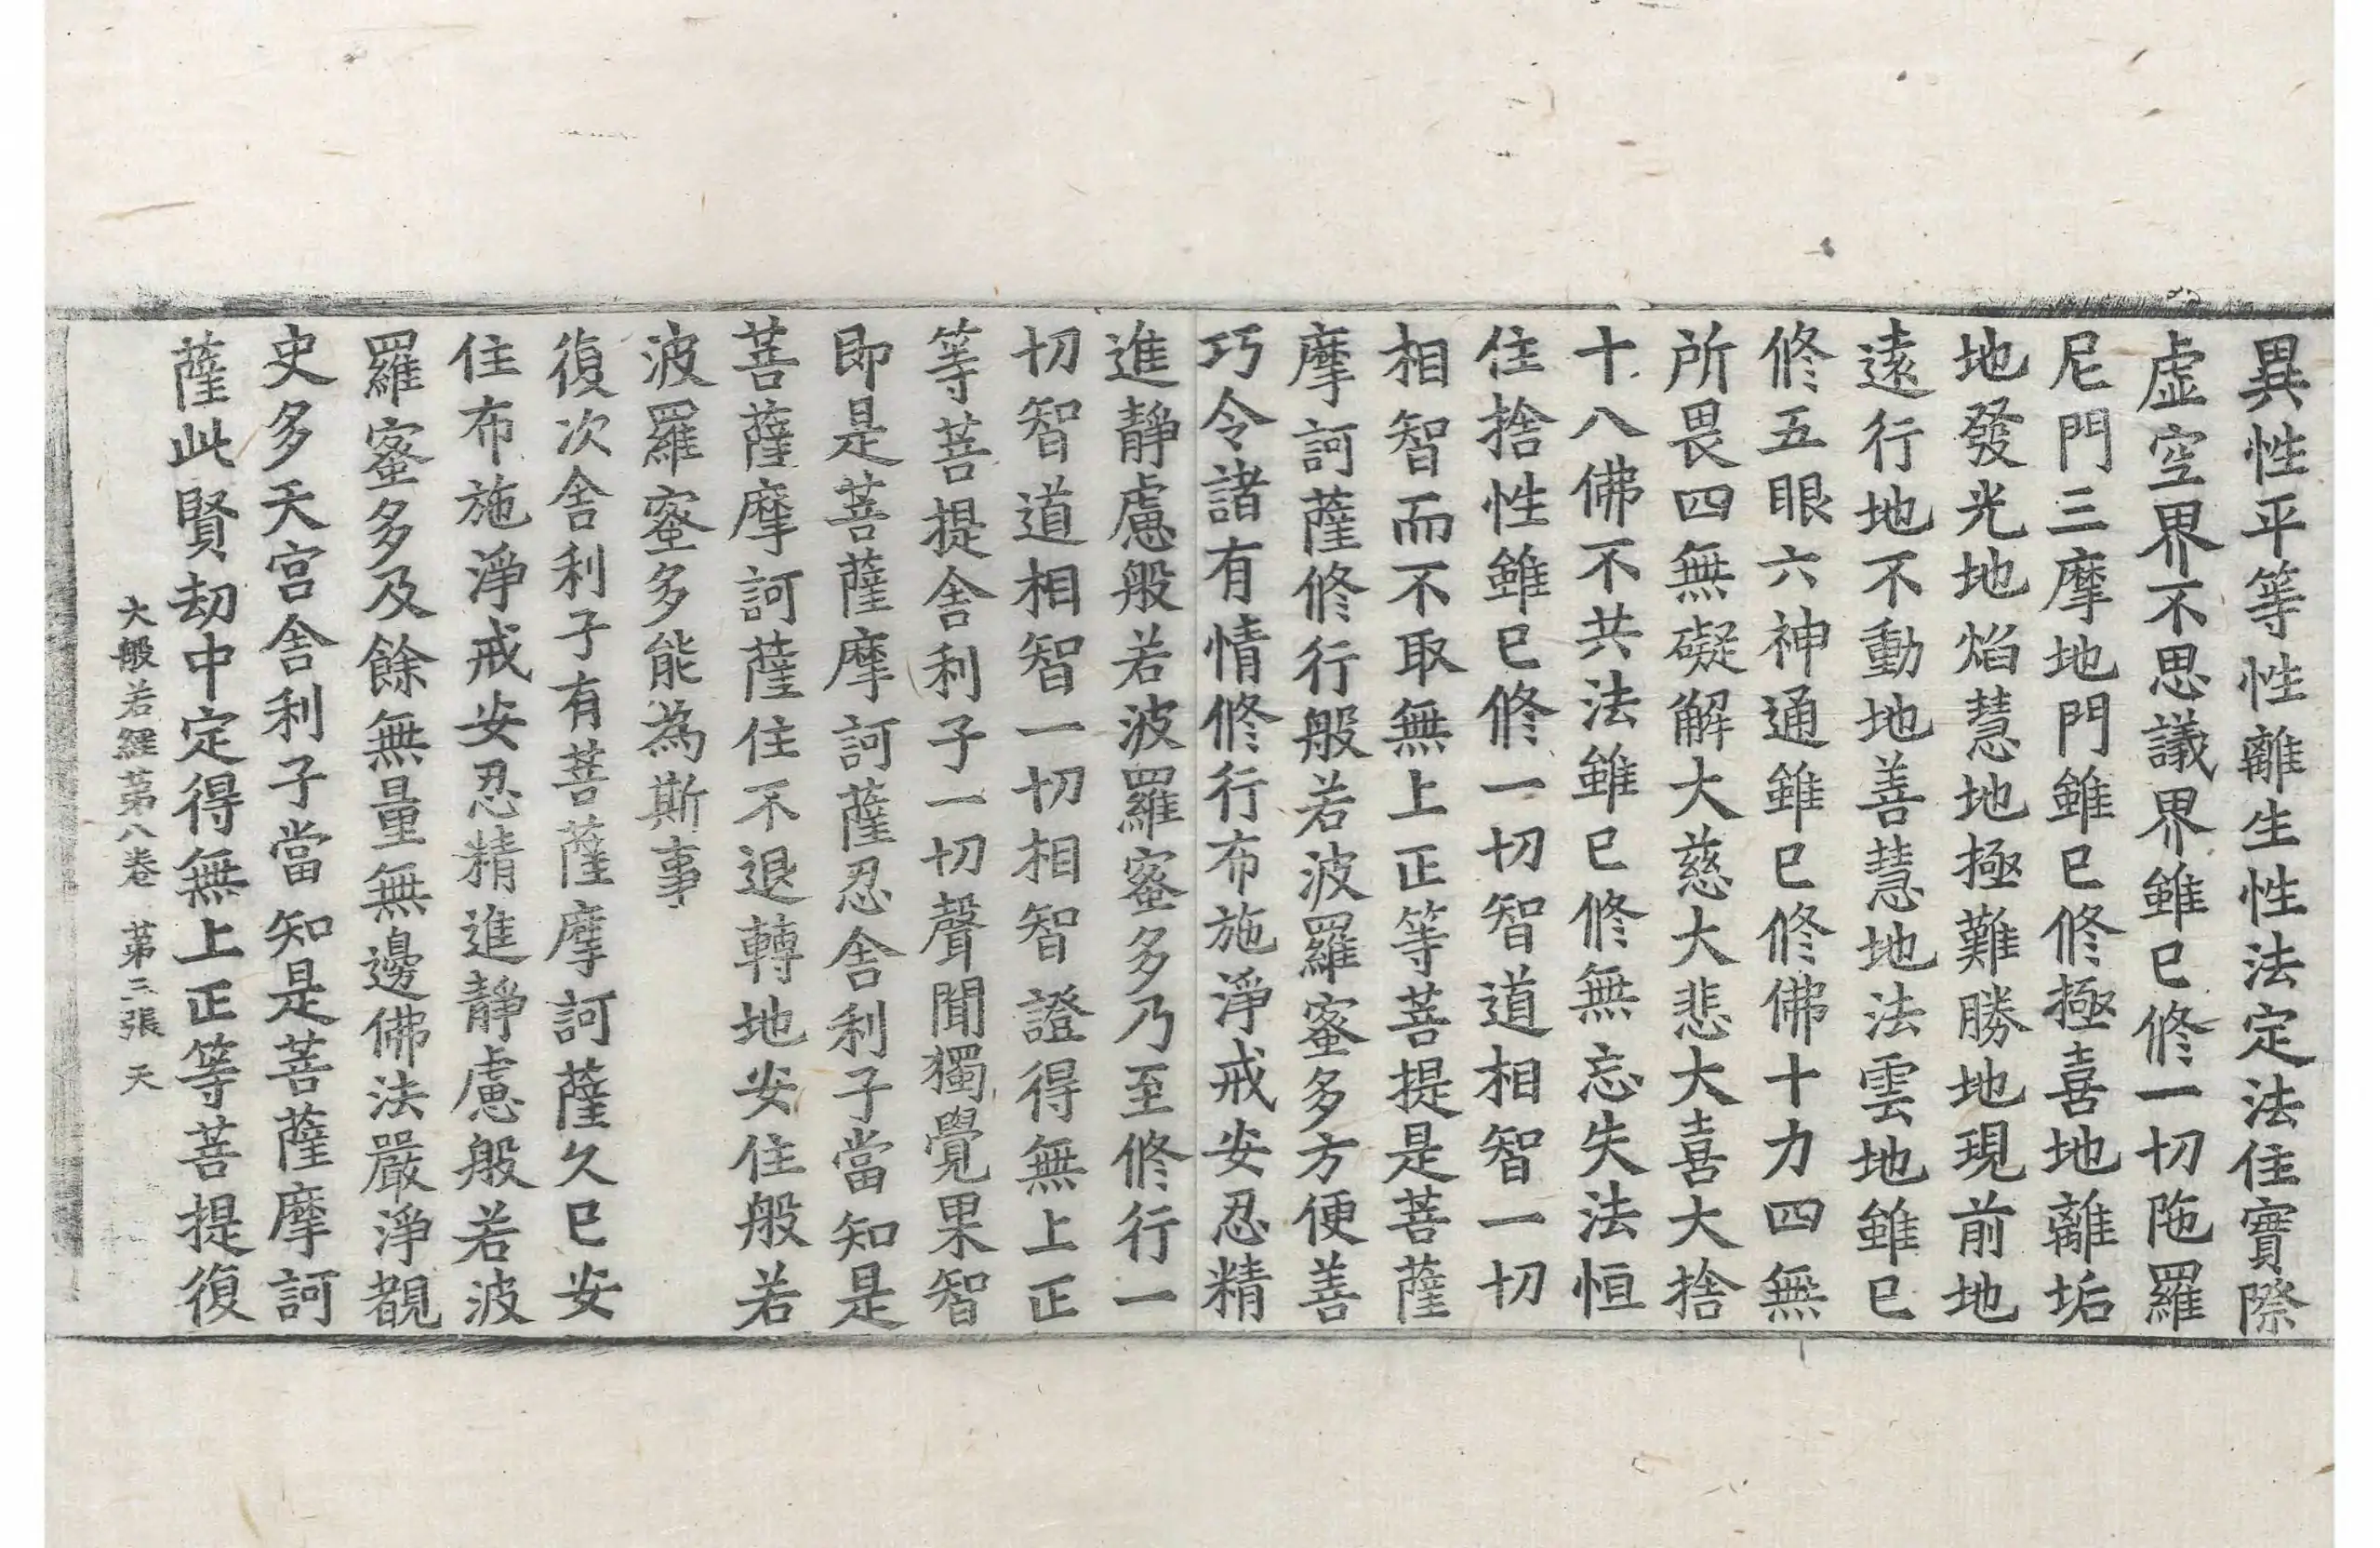 異性平等性離生性法定法住實際
虛空界不思議界雖已修一切陁羅
尼門三摩地門雖已修極喜地離垢
地發光地焰慧地極難勝地現前地
遠行地不動地善慧地法雲地雖已
修五眼六神通雖已修佛十力四無
所畏四無礙解大慈大悲大喜大捨
十八佛不共法雖已修無忘失法恒
住捨性雖已修一切智道相智一切
相智而不取無上正等菩提是菩薩
摩訶薩修行般若波羅蜜多方便善
巧令諸有情修行布施淨戒安忍精
進靜慮般若波羅蜜多乃至修行一
切智道相智一切相智證得無上正
等菩提舍利子一切聲聞獨覺果智
即是菩薩摩訶薩忍舍利子當知是
菩薩摩訶薩住不退轉地安住般若
波羅蜜多能為斯事
復次舍利子有菩薩摩訶薩久已安
住布施淨戒安忍精進靜慮般若波
羅蜜多及餘無量無邊佛法嚴淨覩
史多天宮舍利子當知是菩薩摩訶
薩此賢劫中定得無上正等菩提復
大般若經第八卷 第三張 天